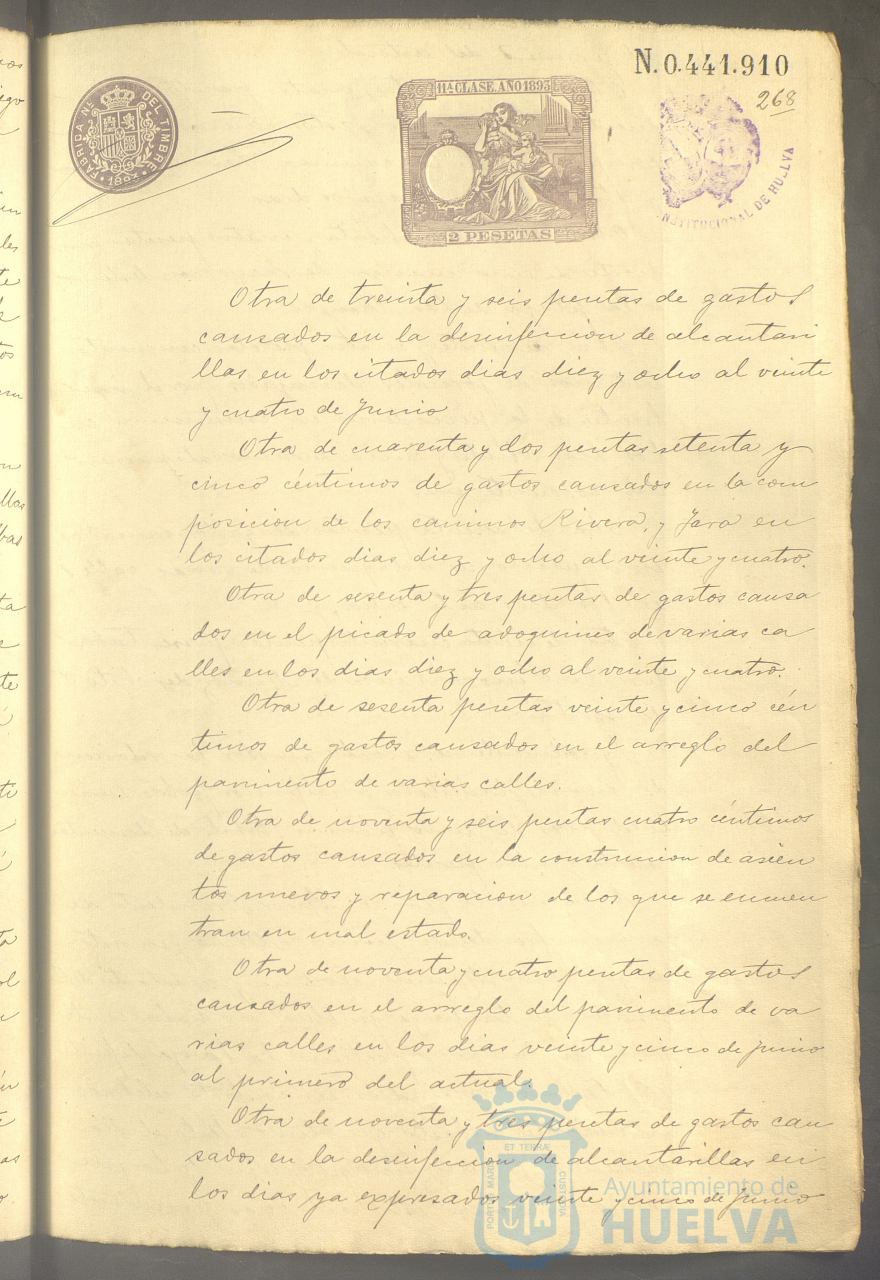 N.0.441.910
268
FABRICA Nº DEL TIMBRE
11ª CLASE. AÑO 1893
2 PESETAS
NSTITUCIONAL DE HUELVA
Otra de treinta y seis pesetas de gastos
causados en la desinfeccion de alcantari
llas en los citados dias diez y ocho al veinte
y cuatro de Junio
Otra de cuarenta y dos pesetas setenta y
cinco céntimos de gastos causados en la com
posicion de los caminos Rivera, y Jara en
los citados dias diez y ocho al veinte y cuatro.
Otra de sesenta y tres pesetas de gastos causa
dos en el picado de adoquines de varias ca
lles en los dias diez y ocho al veinte y cuatro.
Otra de sesenta pesetas veinte y cinco cén
timos de gastos causados en el arreglo del
pavimento de varias calles.
Otra de noventa y seis pesetas cuatro céntimos
de gastos causados en la construccion de asien
tos nuevos y reparacion de los que se encuen
tran en mal estado.
Otra de noventa y cuatro pesetas de gastos
causados en el arreglo del pavimento de va
rias calles en los dias veinte y cinco de Junio
al primero del actual.
Otra de noventa y tres pesetas de gastos cau
sados en la desinfeccion de alcantarillas en
los dias ya expresados veinte y cinco de Junio
ET TERRÆ
PORTUS MARIS
CUSTODIA
Ayuntamiento de
HUELVA